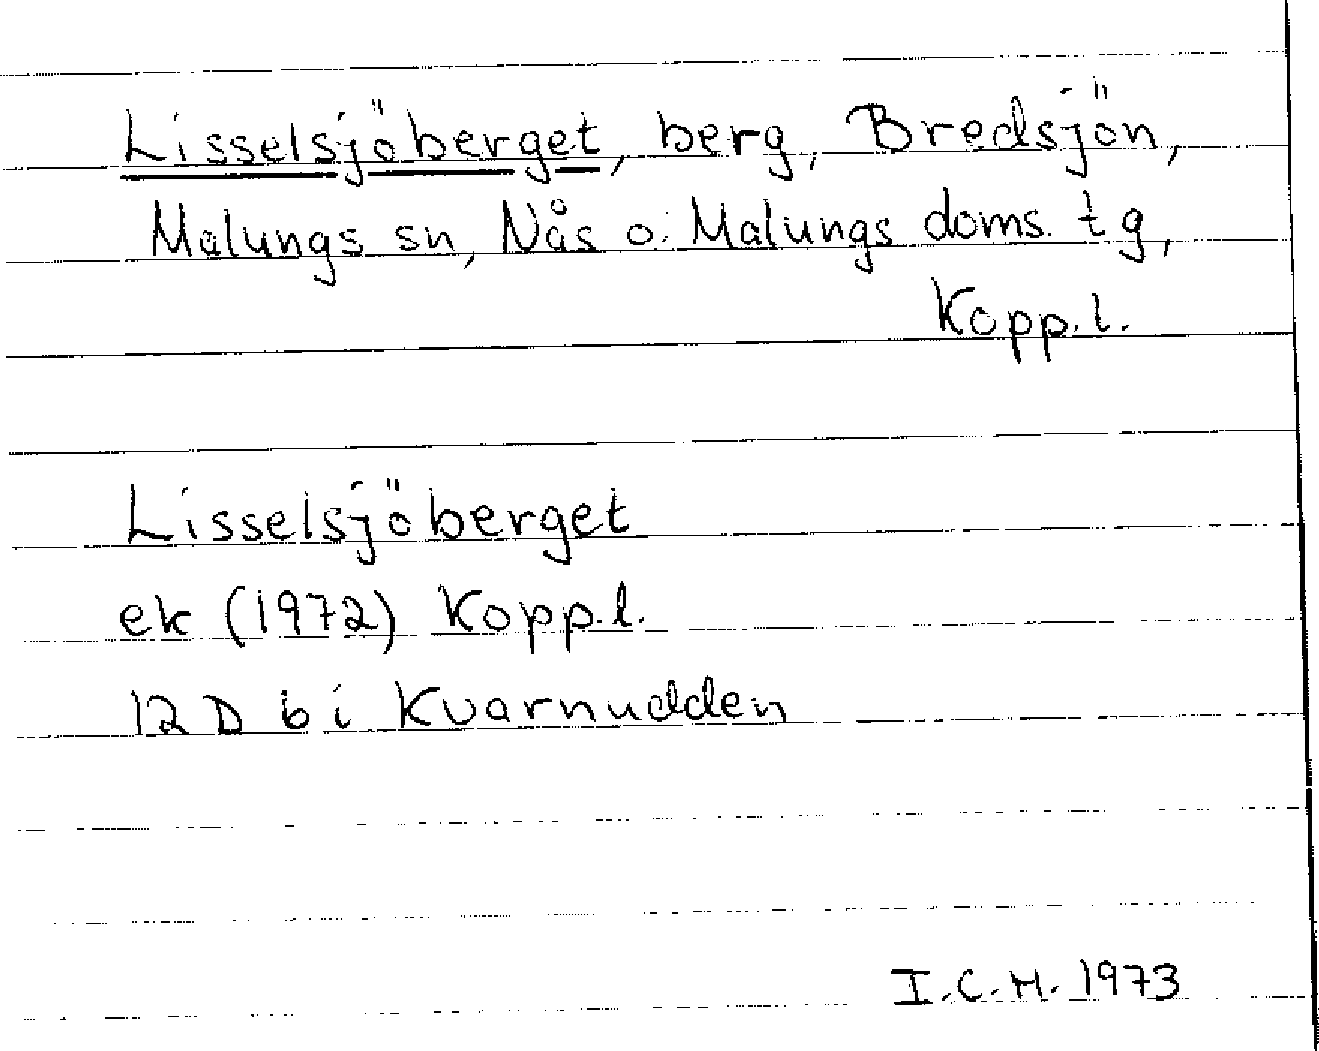 Lisselsjöberget, berg, Bredsjön,
Malungs sn, Nås o. Malungs doms. tg,
Kopp.l.
Lisselsjöberget
ek (1972) Kopp.l.
12 D b i Kvarnudden
I.C.H. 1973